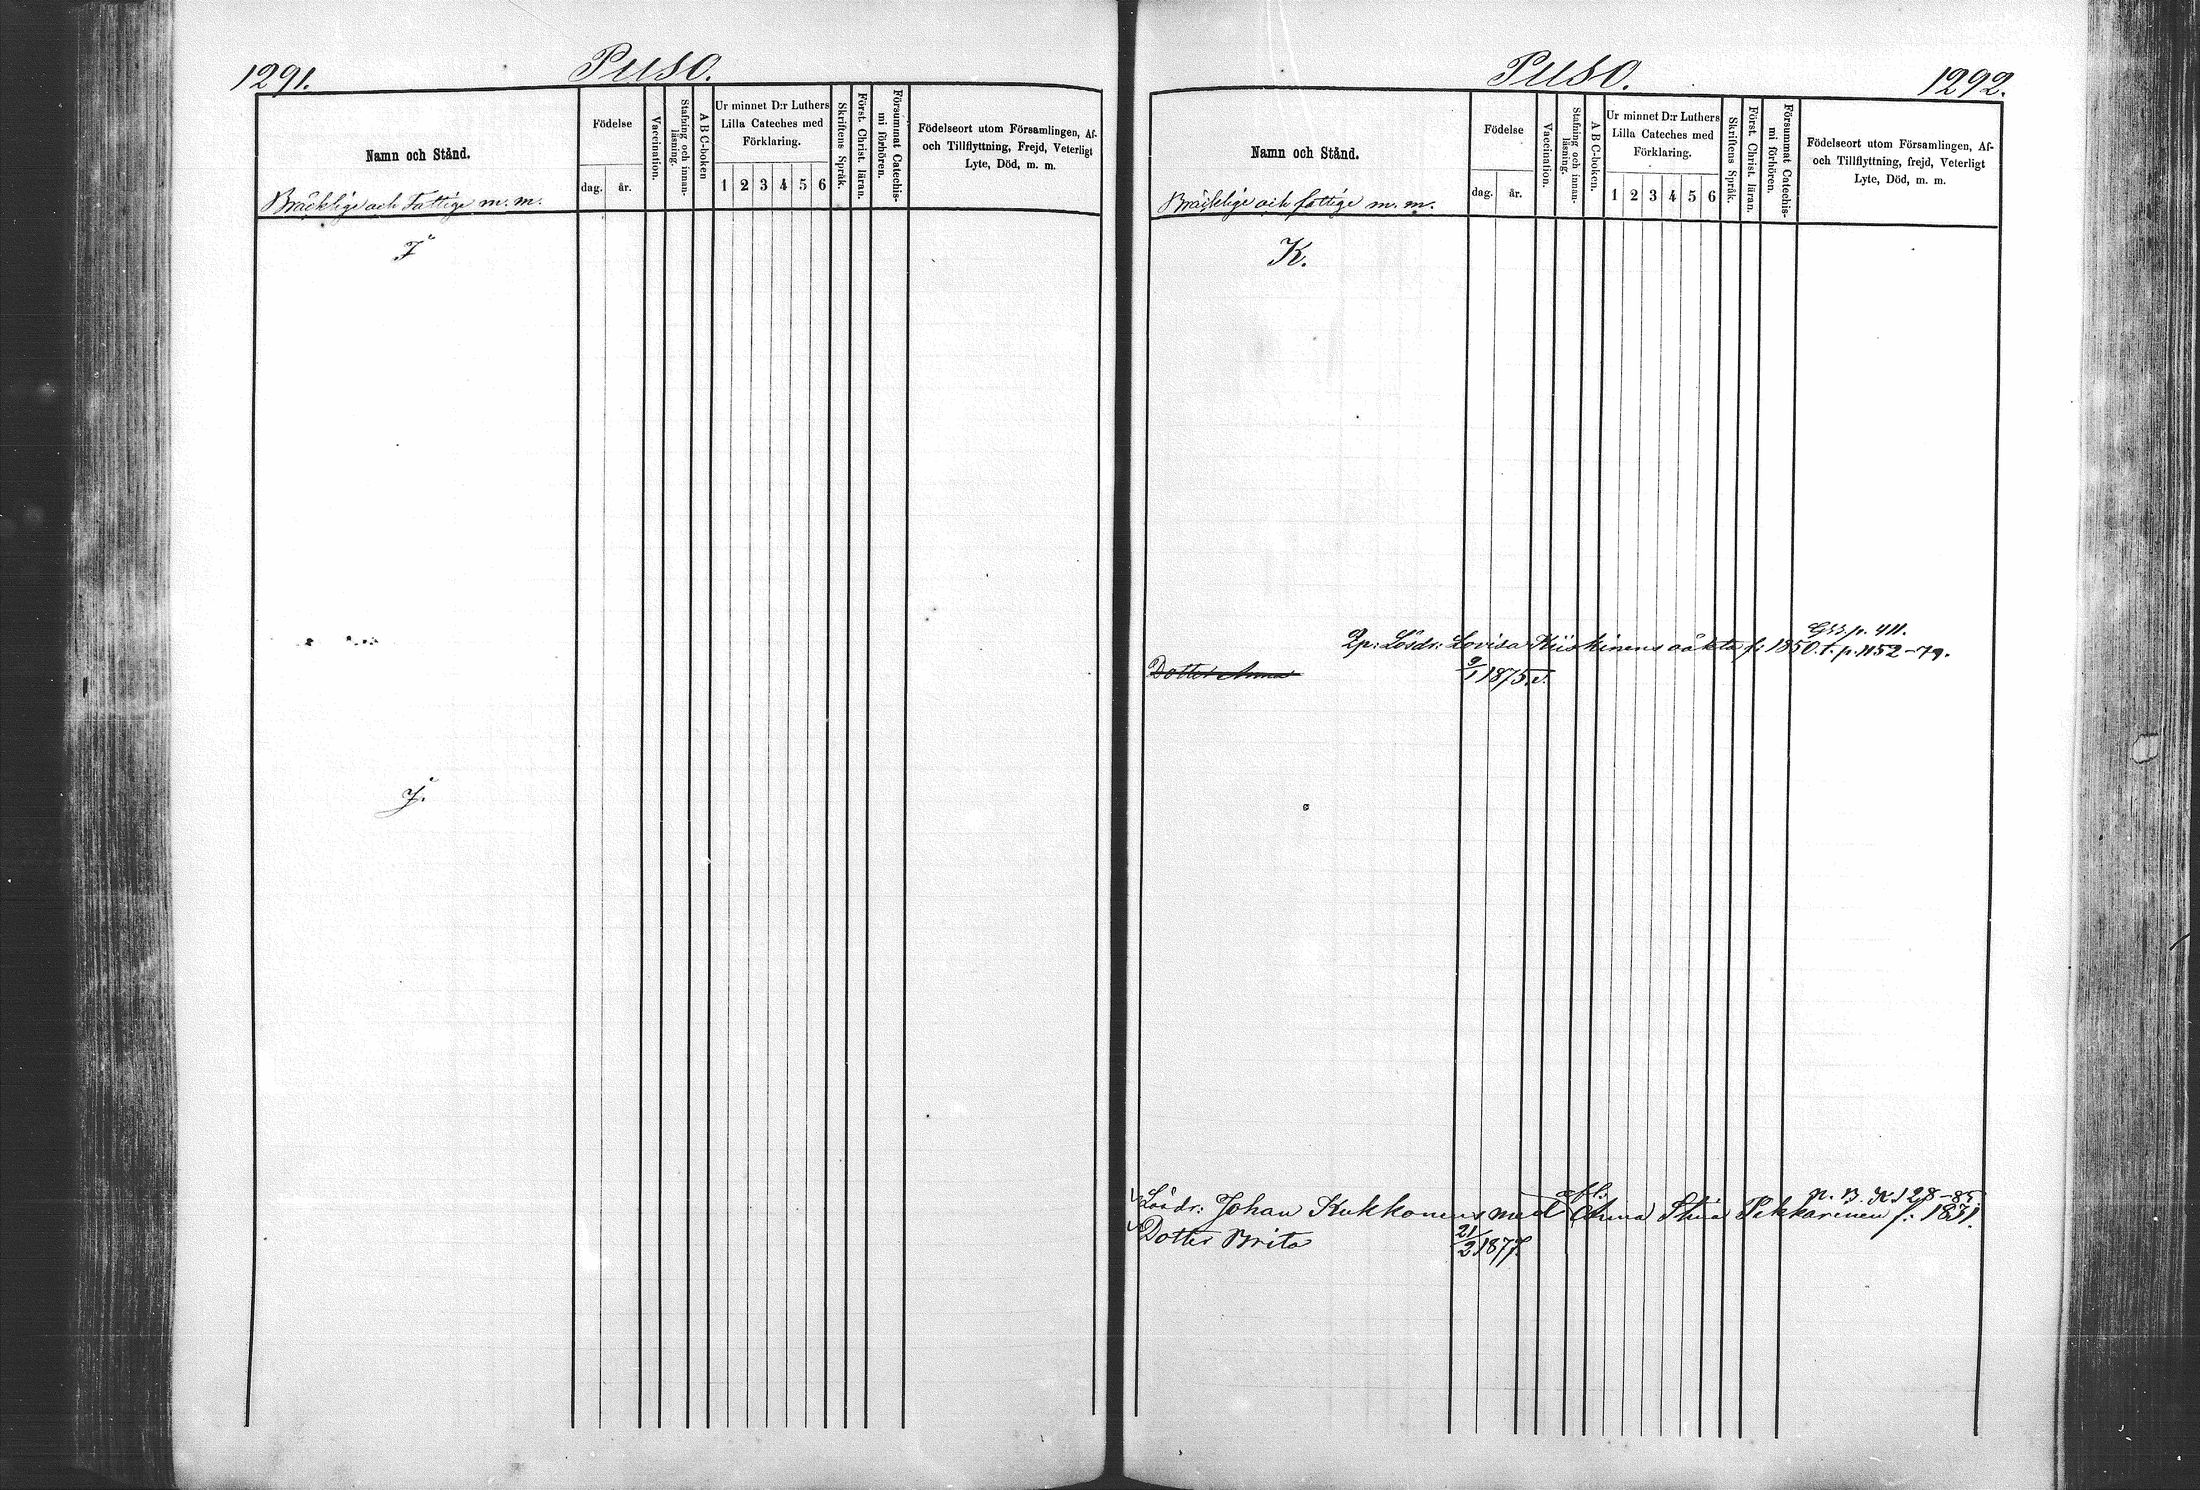 1291.
Puso.
Namn och Stånd.
Bräcklige och Fattige m. m.
Födelse
dag.
år.
Vaccination.
Stafning och innan-
läsning.
A B C-boken
Ur minnet D:r Luthers
Lilla Cateches med
Förklaring.
1 2 3 4 5 6
Skriftens Språk.
Först. Christ. läran.
Försummat Catechis-
mi förhören.
Födelseort utom Församlingen, Af-
och Tillflyttning, Frejd, Veterligt
Lyte, Död, m. m.
I
J.
Puso.
1292.
Namn och Stånd.
Bräcklige och fattige m. m.
Födelse
dag.
år.
Vaccination.
Stafning och innan-
läsning.
A B C-boken.
Ur minnet D:r Luthers
Lilla Cateches med
Förklaring.
1 2 3 4 5 6
Skriftens Språk.
Först. Christ. läran.
Försummat Catechis-
mi förhören.
Födelseort utom Församlingen, Af-
och Tillflyttning, frejd, Veterligt
Lyte, Död, m. m.
K.
p. 411.
Lösdr: Lovisa Kiiskinens oäkta f: 1850. t. p. 1152-79.
Dotter Anna 9/1 1875. v.
n. B. K. 128-85
Lösdr: Johan Kukkonens med afl: Anna Stina Pekkarinen f: 1831.
Dotter Brita 21/2 1877.